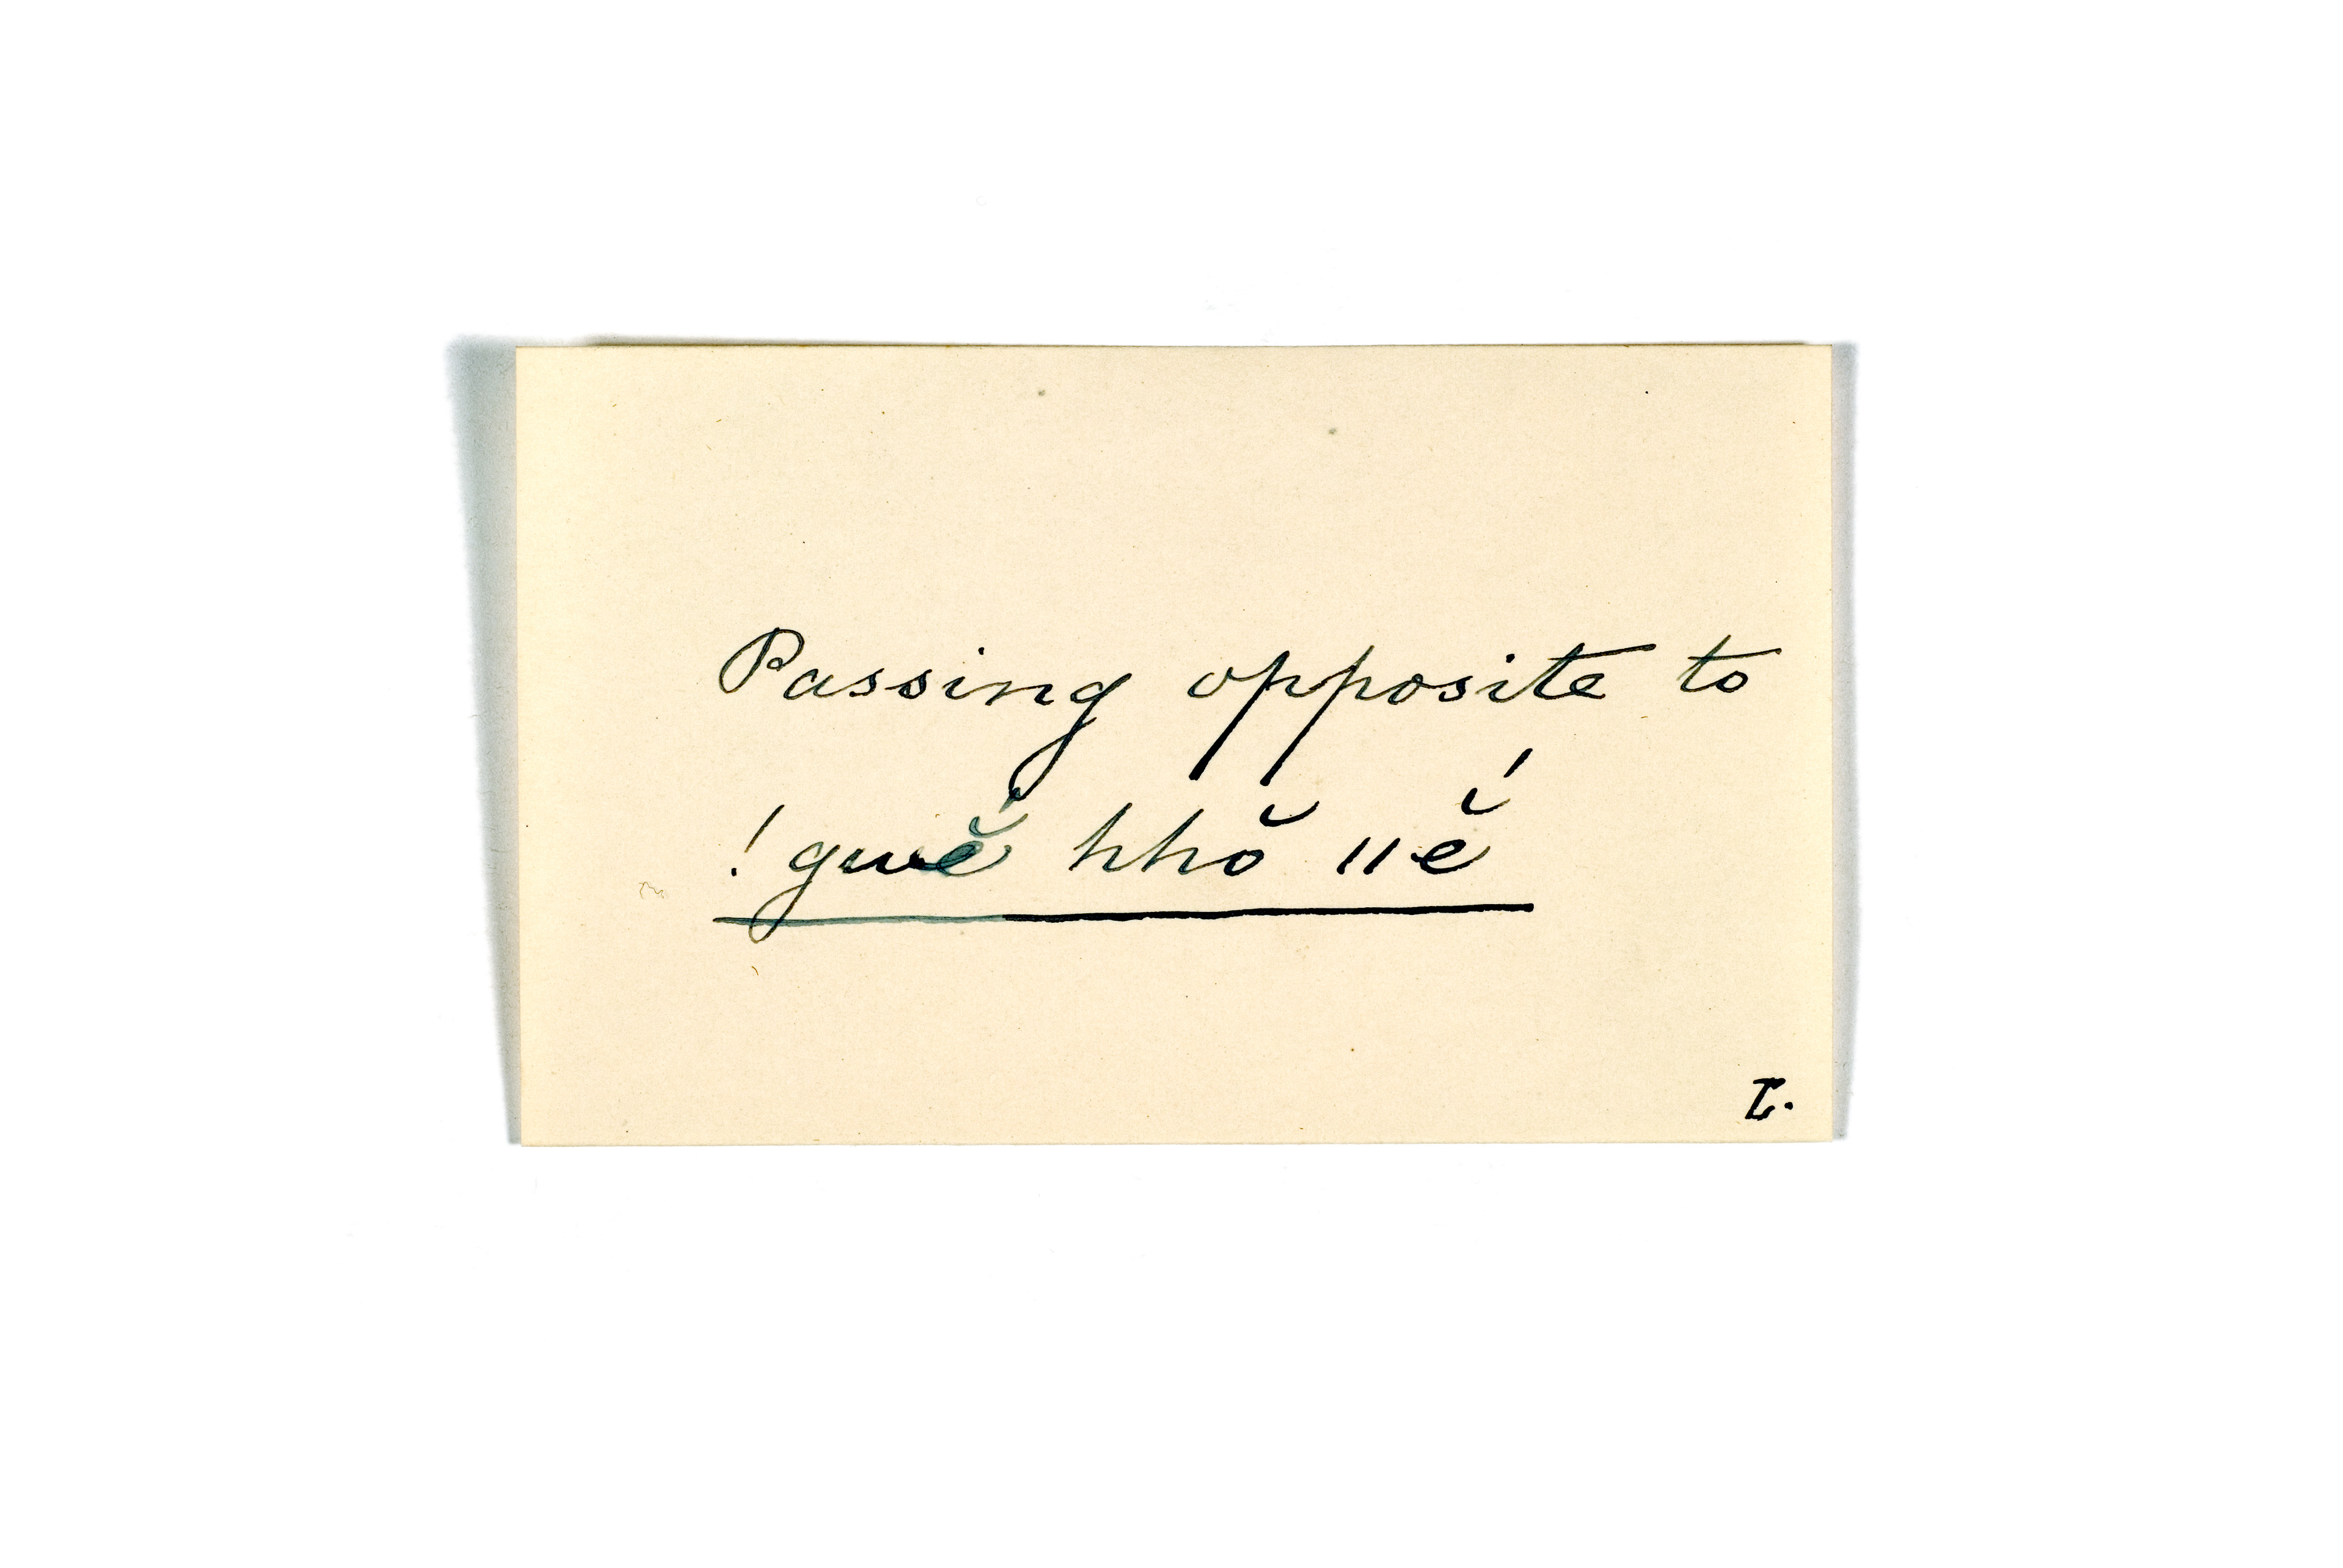 Passing opposite to
!gwĕ́ hhŏ ǁĕ́
L.